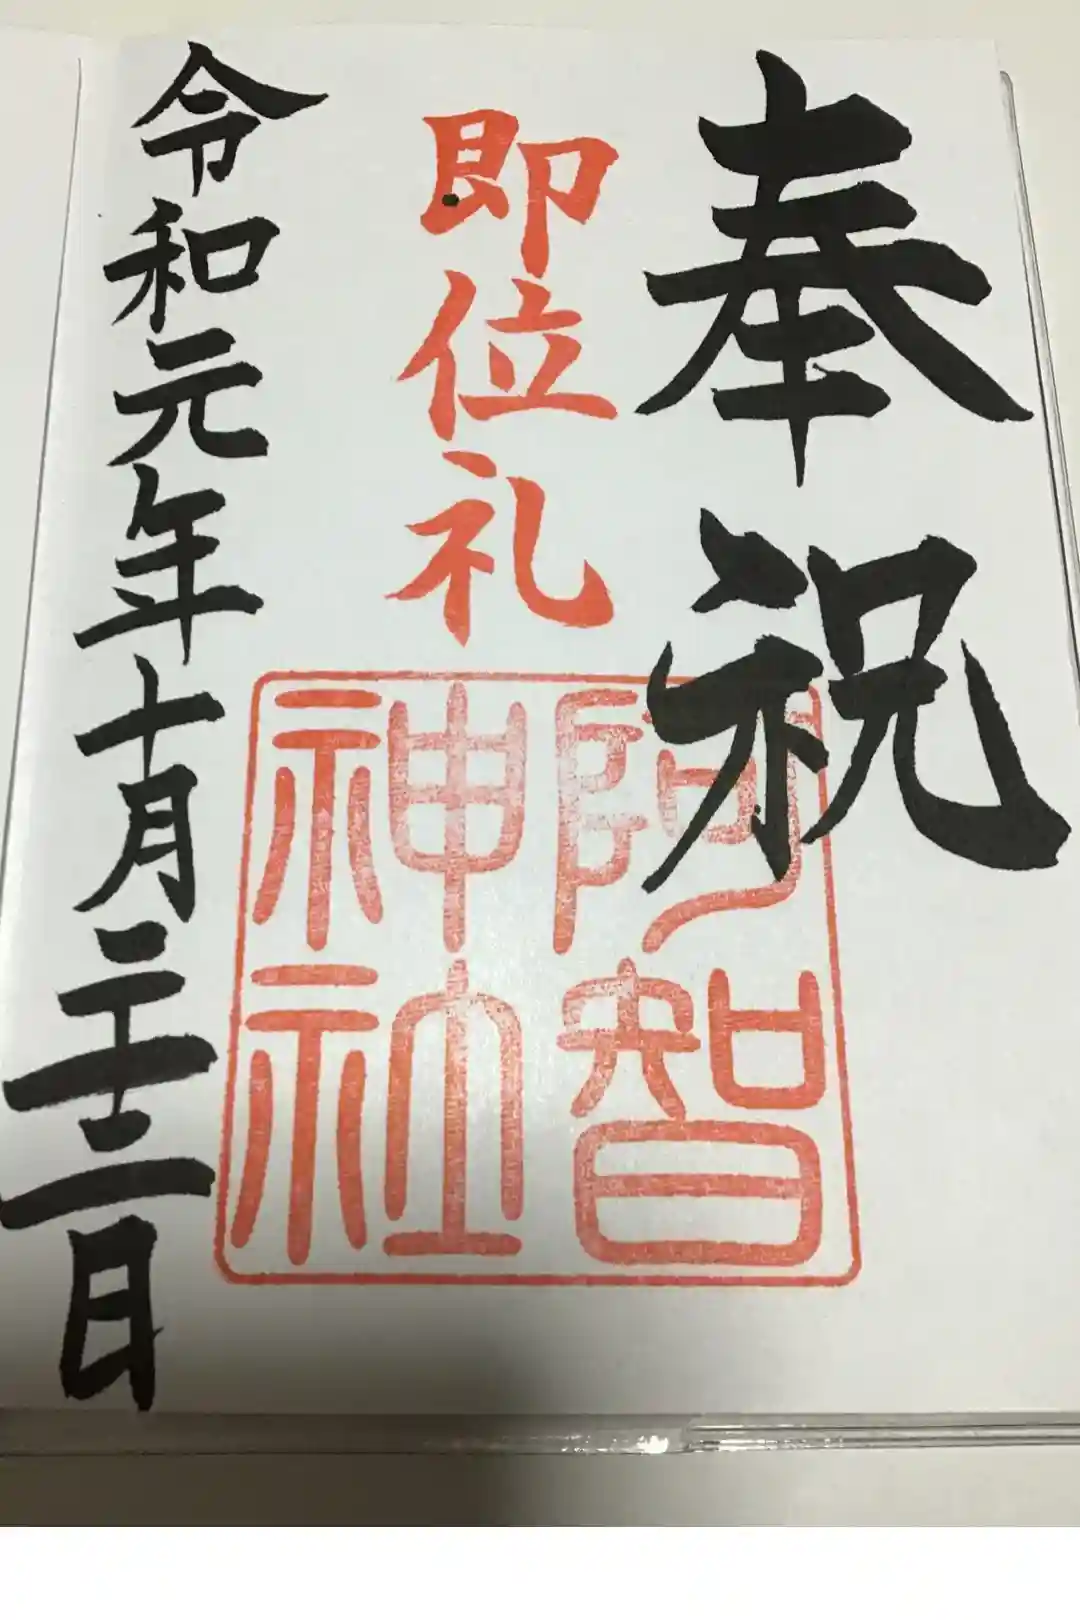 奉祝
即位礼
阿智
神社
令和元年十月二十二日